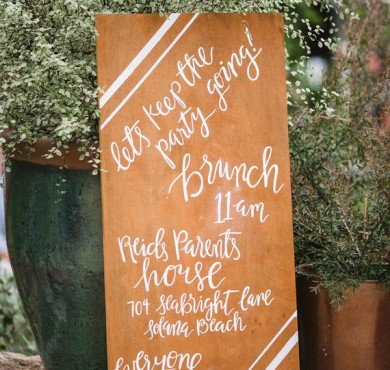 let's keep the
party going!
brunch
11am
Reids Parents
house
704 Seabright Lane
Solana Beach
everyone